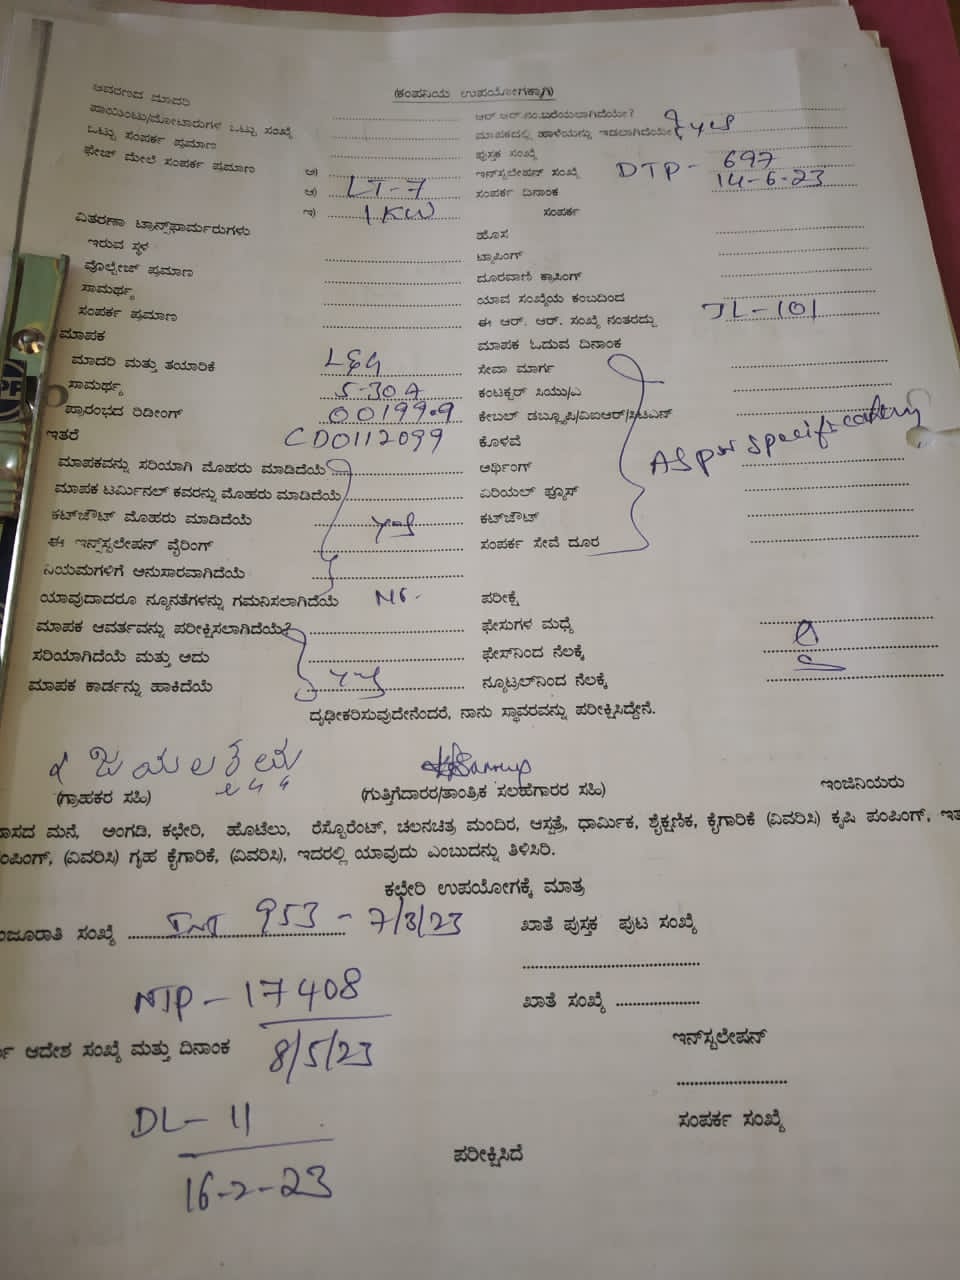 (ಕಂಪನಿಯ ಉಪಯೋಗಕ್ಕಾಗಿ)
ಆವರಣದ ಮಾದರಿ
ಆರ್.ಆರ್.ನಂ.ಬರೆಯಲಾಗಿದೆಯೇ?
ಪಾಯಿಂಟು/ಮೋಟಾರುಗಳ ಒಟ್ಟು ಸಂಖ್ಯೆ
ಮಾಪಕದಲ್ಲಿ ಹಾಳೆಯನ್ನು ಇಡಲಾಗಿದೆಯೇ? yes
ಒಟ್ಟು ಸಂಪರ್ಕ ಪ್ರಮಾಣ
ಪುಸ್ತಕ ಸಂಖ್ಯೆ
ಫೇಜ್ ಮೇಲೆ ಸಂಪರ್ಕ ಪ್ರಮಾಣ ಅ)
ಇನ್‌ಸ್ಟಲೇಷನ್ ಸಂಖ್ಯೆ DTP - 697
ಆ) LT-7 ಸಂಪರ್ಕ ದಿನಾಂಕ 14-6-23
ಇ) 1 KW ಸಂಪರ್ಕ
ವಿತರಣಾ ಟ್ರಾನ್ಸ್‌ಫಾರ್ಮರುಗಳು
ಇರುವ ಸ್ಥಳ ಹೊಸ
ವೊಲ್ಟೇಜ್ ಪ್ರಮಾಣ ಟ್ಯಾಪಿಂಗ್
ಸಾಮರ್ಥ್ಯ ದೂರವಾಣಿ ಕ್ರಾಸಿಂಗ್
ಸಂಪರ್ಕ ಪ್ರಮಾಣ ಯಾವ ಸಂಖ್ಯೆಯ ಕಂಬದಿಂದ
ಮಾಪಕ ಈ ಆರ್. ಆರ್. ಸಂಖ್ಯೆ ನಂತರದ್ದು JL-101
ಮಾಪಕ ಓದುವ ದಿನಾಂಕ
ಮಾದರಿ ಮತ್ತು ತಯಾರಿಕೆ L&G ಸೇವಾ ಮಾರ್ಗ
ಸಾಮರ್ಥ್ಯ 5-30A ಕಂಟಕ್ಟರ್ ಸಿಯು/ಎ
ಪ್ರಾರಂಭದ ರಿಡೀಂಗ್ 00199.9 ಕೇಬಲ್ ಡಬ್ಲ್ಯೂಪಿ/ವಿಐಆರ್/ಸಿಟಿಎಸ್
ಇತರೆ CD0112099 ಕೊಳವೆ
ಮಾಪಕವನ್ನು ಸರಿಯಾಗಿ ಮೊಹರು ಮಾಡಿದೆಯೆ ಅರ್ಥಿಂಗ್ As per specification
ಮಾಪಕ ಟರ್ಮಿನಲ್ ಕವರನ್ನು ಮೊಹರು ಮಾಡಿದೆಯೆ ಏರಿಯಲ್ ಫ್ಯೂಸ್
ಕಟ್‌ಔಟ್ ಮೊಹರು ಮಾಡಿದೆಯೆ yes ಕಟ್‌ಔಟ್
ಈ ಇನ್‌ಸ್ಟಲೇಷನ್ ವೈರಿಂಗ್ ಸಂಪರ್ಕ ಸೇವೆ ದೂರ
ನಿಯಮಗಳಿಗೆ ಅನುಸಾರವಾಗಿದೆಯೆ
ಯಾವುದಾದರೂ ನ್ಯೂನತೆಗಳನ್ನು ಗಮನಿಸಲಾಗಿದೆಯೆ No - ಪರೀಕ್ಷೆ
ಮಾಪಕ ಆವರ್ತವನ್ನು ಪರೀಕ್ಷಿಸಲಾಗಿದೆಯೆ? ಫೇಸುಗಳ ಮಧ್ಯೆ
ಸರಿಯಾಗಿದೆಯೆ ಮತ್ತು ಅದು ಫೇಸ್‌ನಿಂದ ನೆಲಕ್ಕೆ
ಮಾಪಕ ಕಾರ್ಡನ್ನು ಹಾಕಿದೆಯೆ yes ನ್ಯೂಟ್ರಲ್‌ನಿಂದ ನೆಲಕ್ಕೆ
ದೃಢೀಕರಿಸುವುದೇನೆಂದರೆ, ನಾನು ಸ್ಥಾವರವನ್ನು ಪರೀಕ್ಷಿಸಿದ್ದೇನೆ.
(ಗ್ರಾಹಕರ ಸಹಿ) (ಗುತ್ತಿಗೆದಾರರ/ತಾಂತ್ರಿಕ ಸಲಹೆಗಾರರ ಸಹಿ) ಇಂಜಿನಿಯರು
ವಾಸದ ಮನೆ, ಅಂಗಡಿ, ಕಛೇರಿ, ಹೊಟೆಲು, ರೆಸ್ಟೊರೆಂಟ್, ಚಲನಚಿತ್ರ ಮಂದಿರ, ಆಸ್ಪತ್ರೆ, ಧಾರ್ಮಿಕ, ಶೈಕ್ಷಣಿಕ, ಕೈಗಾರಿಕೆ (ವಿವರಿಸಿ) ಕೃಷಿ ಪಂಪಿಂಗ್,
ಪಂಪಿಂಗ್, (ವಿವರಿಸಿ) ಗೃಹ ಕೈಗಾರಿಕೆ, (ವಿವರಿಸಿ), ಇದರಲ್ಲಿ ಯಾವುದು ಎಂಬುದನ್ನು ತಿಳಿಸಿರಿ.
ಕಛೇರಿ ಉಪಯೋಗಕ್ಕೆ ಮಾತ್ರ
ಮಂಜೂರಾತಿ ಸಂಖ್ಯೆ 953 - 7/3/23 ಖಾತೆ ಪುಸ್ತಕ ಪುಟ ಸಂಖ್ಯೆ
NTP - 17408 ಖಾತೆ ಸಂಖ್ಯೆ
ಆದೇಶ ಸಂಖ್ಯೆ ಮತ್ತು ದಿನಾಂಕ 8/5/23 ಇನ್‌ಸ್ಟಲೇಷನ್
DL - 11 ಸಂಪರ್ಕ ಸಂಖ್ಯೆ
16-2-23 ಪರೀಕ್ಷಿಸಿದೆ